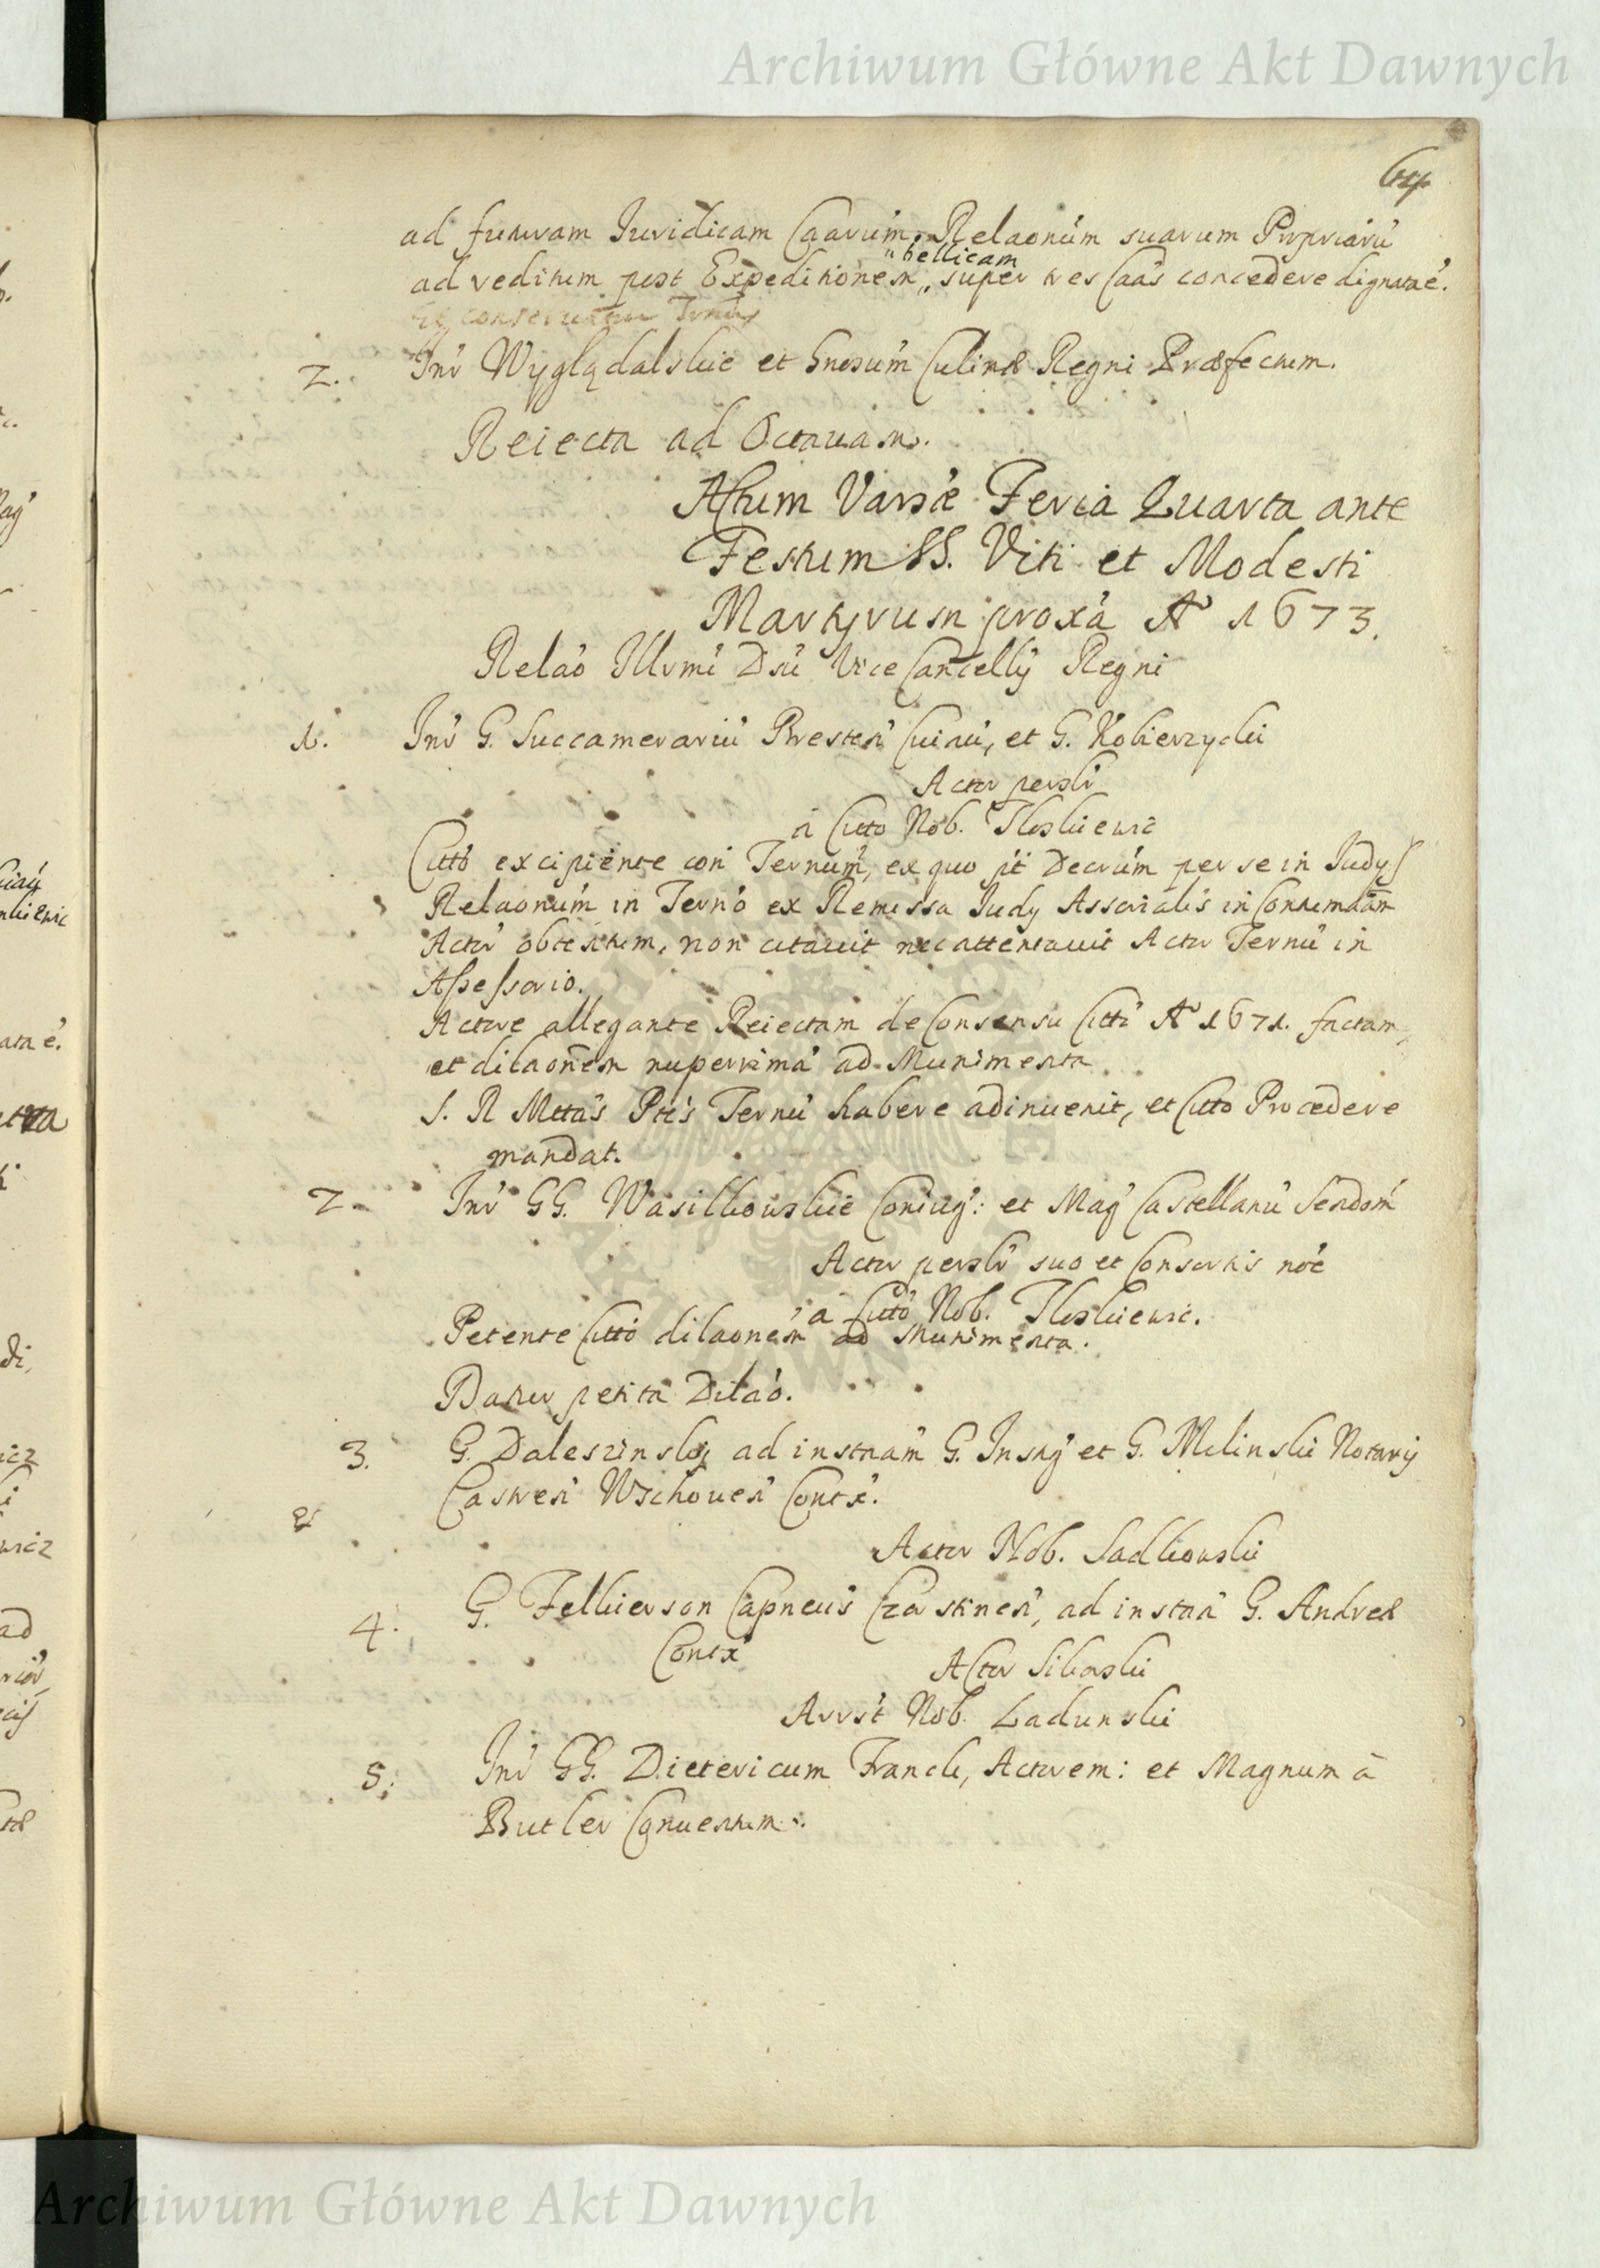 Archiwum Główne Akt Dawnych
64
ad futuram Juridicam Caarum, Relaonum suarum Propriaru
bellicam
ad reditum post Expeditionem, super tres Caas concedere dignatae.
conservatur Ternus
2. Inr Wyglądalskie et Gnosum Culinæ Regni Præfectum.
Reiecta ad Octavam.
Actum Varsæ Feria Quarta ante
Festum SS. Viti et Modesti
Martyrum proxa Ao 1673.
Relao Illrmi Dni Vice Cancellij Regni
1. Inr G. Succamerariu Bresten Cuiau, et G. Kobierzycki
Actor perslr
a Citto Nob.
Citto excipiente con Ternum, ex quo pt Decrum per se in Judy
Relaonum in Terno ex Remissa Judy Assorialis in Contumaam
Actor obtentum, non citavit nec attentavit Actor Ternu in
Assessorio.
Actore allegante Reiectam de Consensu Citti Ao 1671. factam,
et dilaonem nuperrima ad Munimenta
S. R Mttas Ptes Ternu habere adinvenit, et Citto Procedere
mandat.
2. Inr GG. Wasilkowskie Coniug: et Mag Castellanu Sendom
Actor perslr suo et Consortis noe
a Citto Nob.
Petente Citto dilaonem ad Munimenta.
Datur petita Dilao.
3. G. Daleszinsky ad instnam G. Instig et G. Milinski Notarij
Castren Wschoven Contx.
et
Actor Nob. Sadkowski
4. G. Felkierson Capneus Czorstinen, ad instna G. Andreæ
Contx
Actor Sikorski
Arrst Nob. Ladunski
5. Inr GG. Dietericum Franck, Actorem: et Magnum a
Butler Conventum.
Archiwum Główne Akt Dawnych